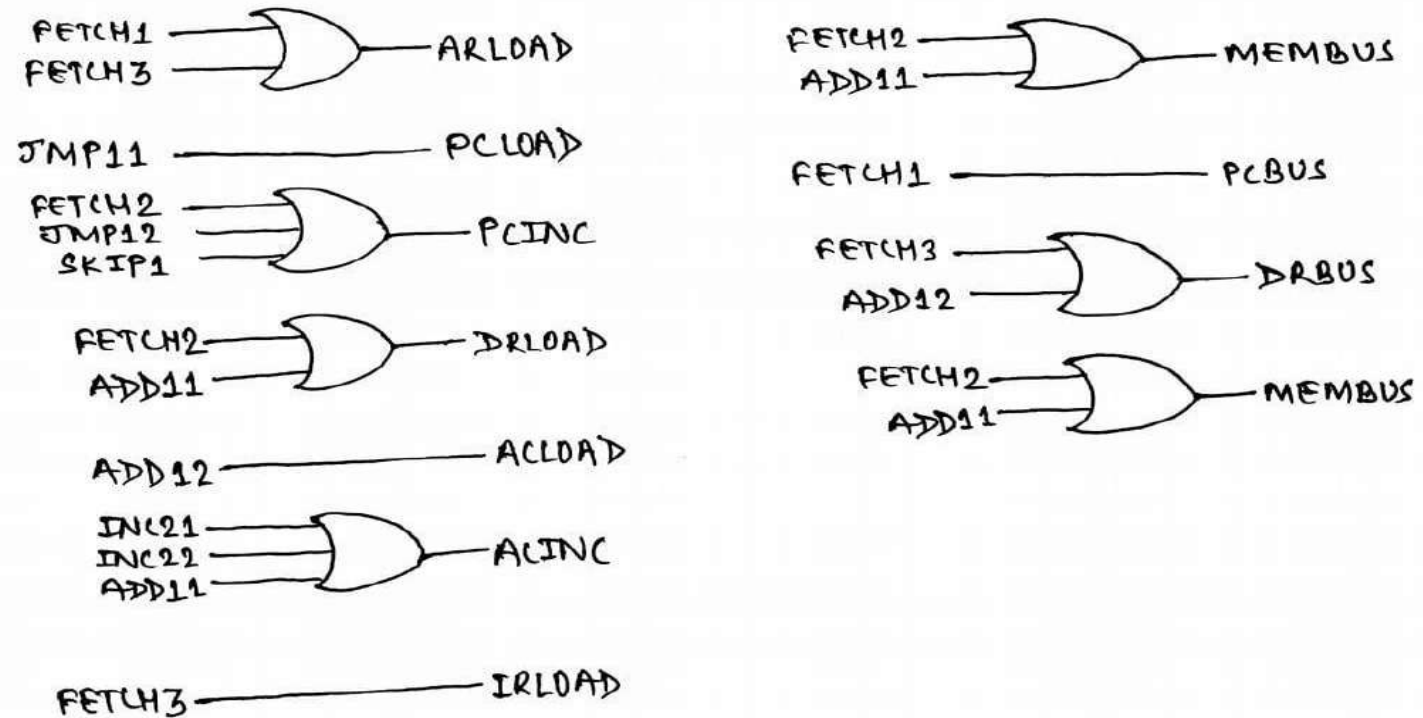 FETCH1
FETCH3
ARLOAD
JMP11
PCLOAD
FETCH2
JMP12
SKIP1
PCINC
FETCH2
ADD11
DRLOAD
ADD12
ACLOAD
INC21
INC22
ADD11
ACINC
FETCH3
IRLOAD
FETCH2
ADD11
MEMBUS
FETCH1
PCBUS
FETCH3
ADD12
DRBUS
FETCH2
ADD11
MEMBUS